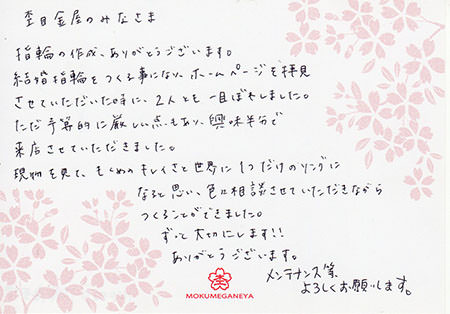 杢目金屋のみなさま
指輪の作成、ありがとうございます。
結婚指輪をつくる事になり、ホームページを拝見
させていただいた時に、2人とも一目ぼれしました。
ただ予算的に厳しい点もあり、興味半分で
来店させていただきました。
現物を見て、もくめのキレイさと世界に1つだけのリングに
なると思い、色々相談させていただきながら
つくることができました。
ずっと大切にします!!
ありがとうございます。
メンテナンス等、
よろしくお願いします。
MOKUMEGANEYA